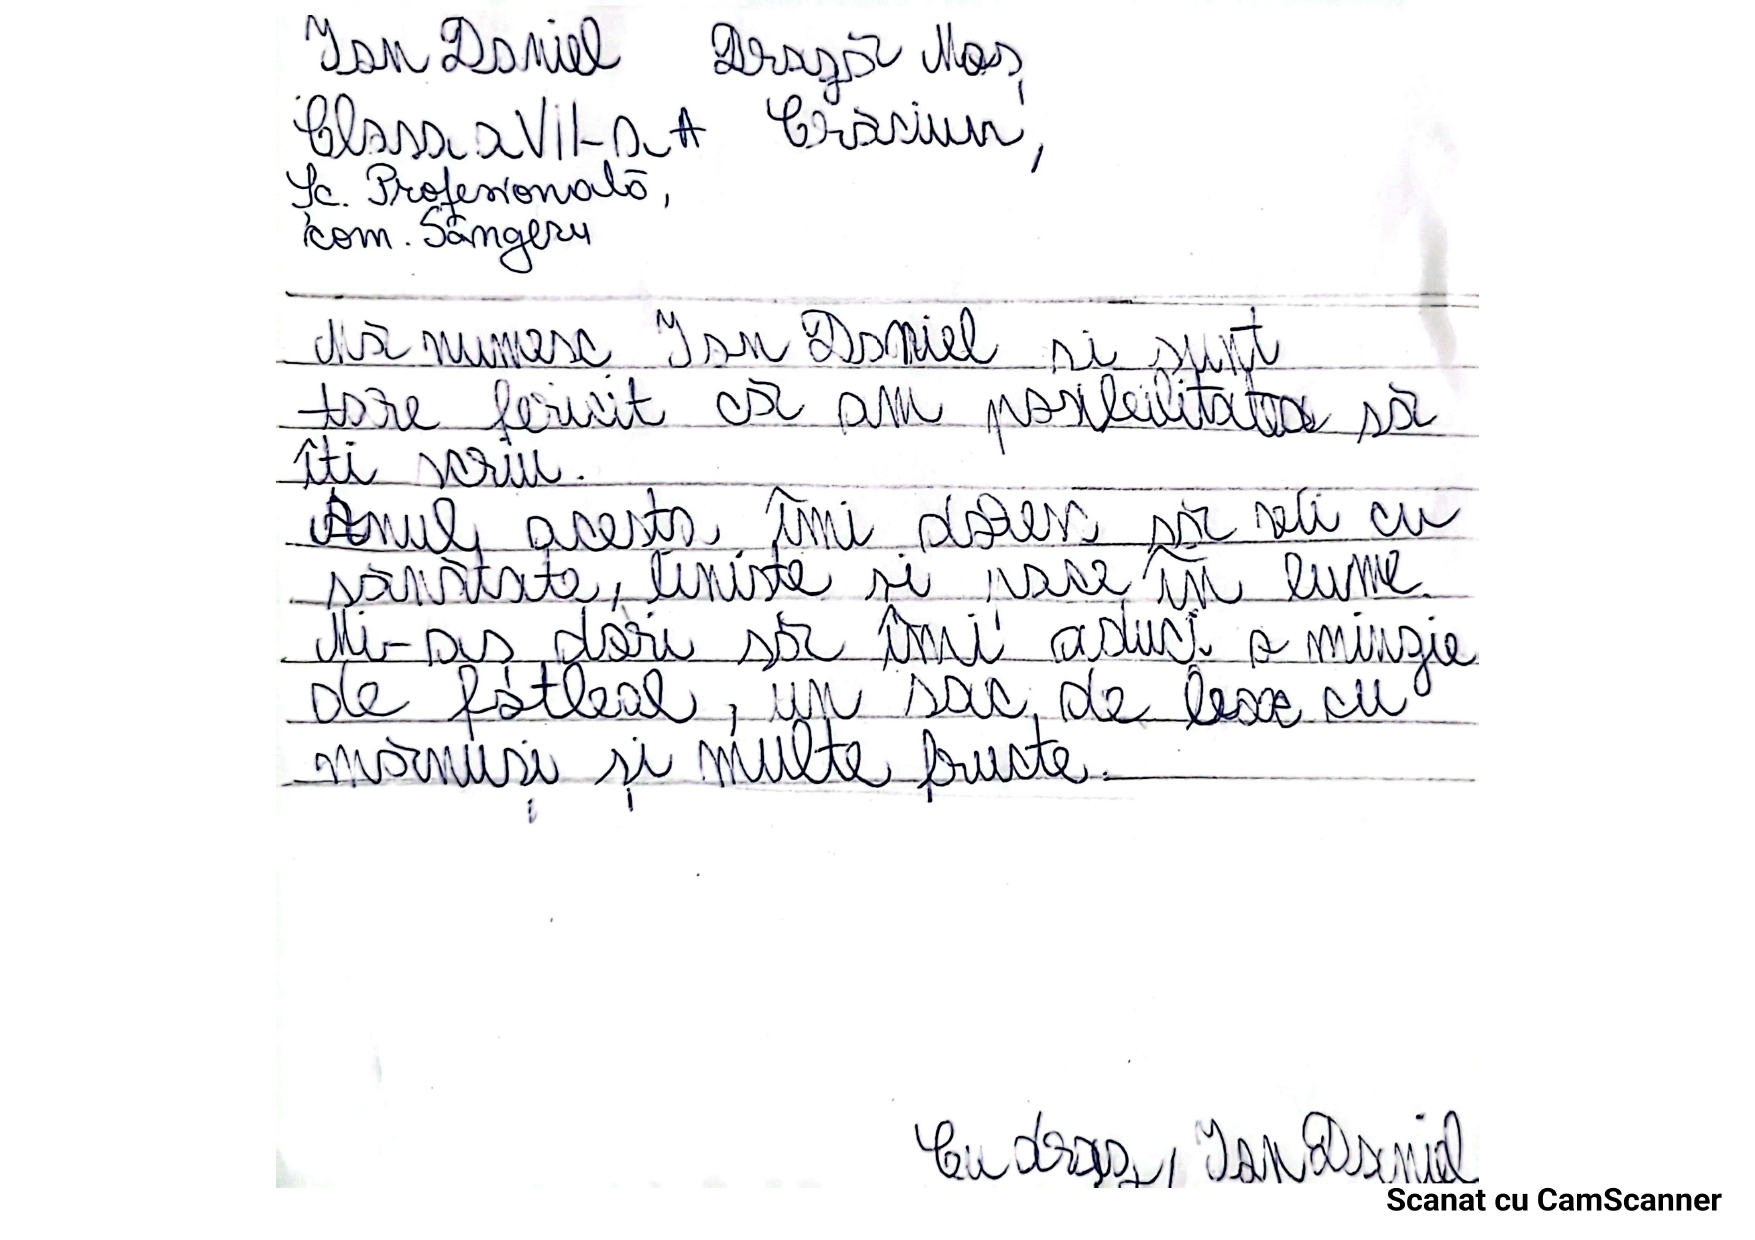 Ion Daniel
Clasa a VII-a A
Sc. Profesională,
com. Sângeru
Dragă Moș
Crăciun,
Mă numesc Ion Daniel si sunt
tare fericit că am posibilitatea să
îti scriu.
Anul acesta îmi doresc să vii cu
sănătate, liniste si pace în lume.
Mi-as dori să îmi aduci o mingie
de fotbal, un sac de box cu
mănuși și multe fructe.
Cu drag, Ion Daniel
Scanat cu CamScanner